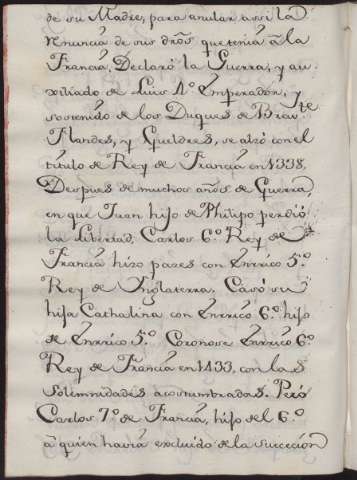 de su Madre, para anular assi la
renuncia de sus dros que tenia â la
Francia, Declaró la Guerra, y au-
xiliado de Luis 4º Emperador, y
sostenido de los Duques de Brav.te
Flandes, y Gueldres, se alzó con el
titulo de Rey de Francia en 1338.
Despues de muchos años de Guerra
en que Juan hijo de Phelipo perdió
la libertad, Carlos 6º Rey de
Francia hizo pazes con Enrrico 5º
Rey de Ynglaterra. Casó su
hija Cathalina con Enrrico 6º hijo
de Enrrico 5º Coronose Enrrico 6º
Rey de Francia en 1433, con las
Solemnidades acostumbradas. Pero
Carlos 7º de Francia, hijo del 6º
â quien havia excluido de la succecion